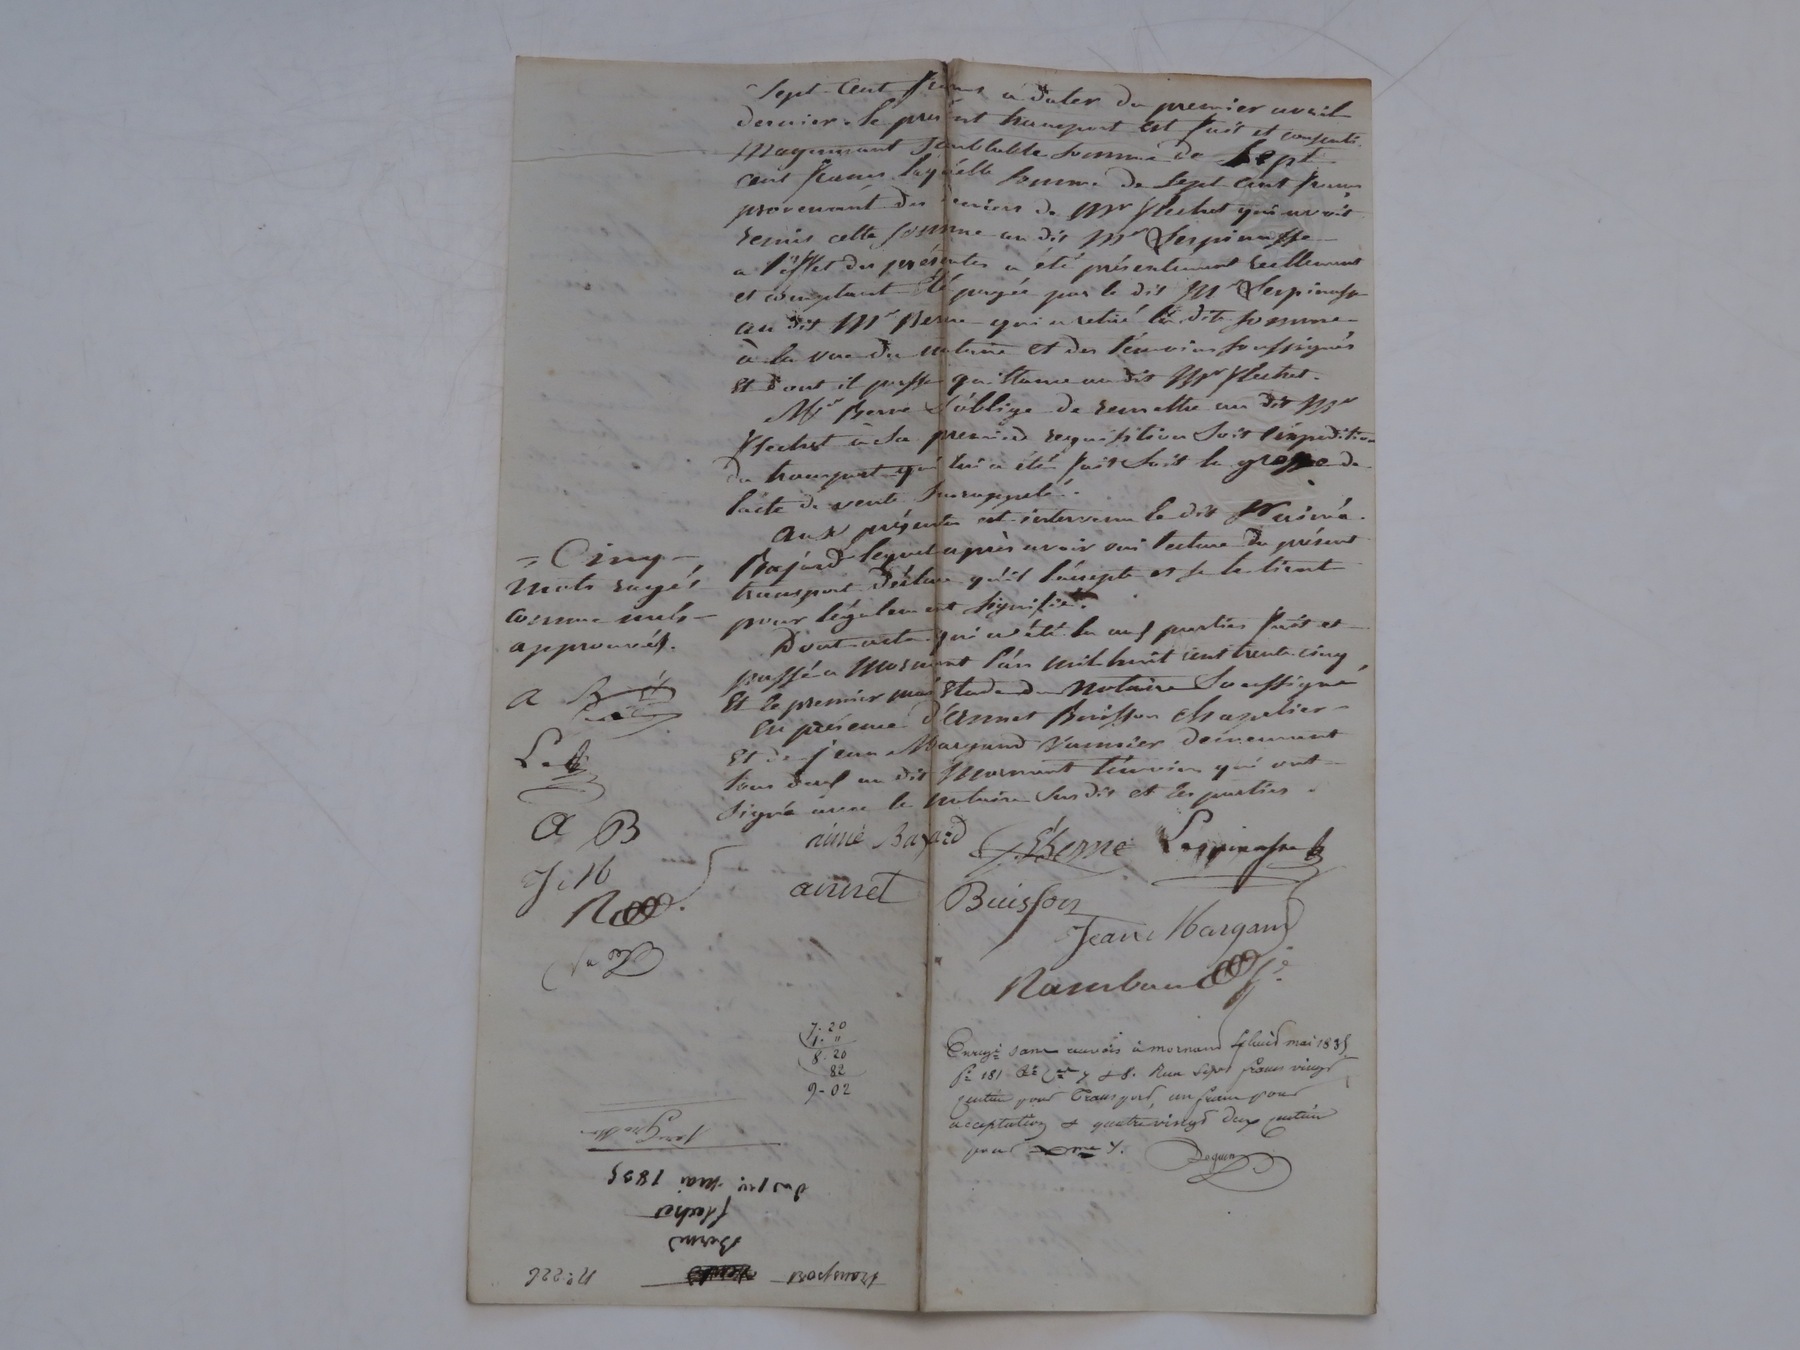 Sept Cent francs à dater du premier avril
dernier. le présent transport est fait et consenti
Moyennant semblable somme de Sept
cent francs laquelle somme de Sept Cent francs
provenant des deniers de Mr flechet qui avoit
remis cette somme au dit Mr Lespinasse
a l'effet des présentes a été présentement reellement
et comptant été payée par le dit Mr Lespinasse
au dit Mr Berne qui a retiré la dite somme
à la vue du notaire et des témoins soussignés
Et dont il passe quittance au dit Mr flechet.
Mr Berne s'oblige de remettre au dit Mr
flechet à sa première requisition soit l'expedition
du transport qui lui a été fait soit la grosse de
l'acte de vente surrappelé.
aux présentes est intervenu le dit Sr aimé
Bajard lequel après avoir oui lecture du présent
transport déclare qu'il l'accepte et se le tient
pour légalement signifié.
Dont acte qui a été lu aux parties fait et
passé a Mornant l'an mil huit cent trente cinq
Et le premier mai Etude du Notaire Soussigné
En présence d'annet Buisson chapelier
Et de jean Margand Vannier demeurant
tous deux au dit Mornant témoins qui ont
signé avec le notaire susdit et les parties.
= Cinq =
mots rayés
comme nuls
approuvés.
a B
Les
a B
J. M
R
aimé Bajard Berne Lespinasse
annet Buisson
Jean Margand
Rambaud
7. 20
1. "
8. 20
82
9-02
Enregé sans renvois à mornant le huit mai 1835
fo 181 Ro Ces 7 & 8. Reçu sept francs vingt
centimes pour Transport, un franc pour
acceptation & quatre vingt deux centimes
pour
No. 226
transport
Berne
flechet
du 1er. mai 1835